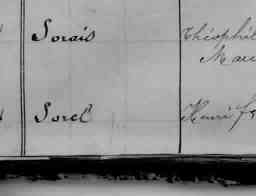 Sorais Théophil
Mar
Sorel Henri